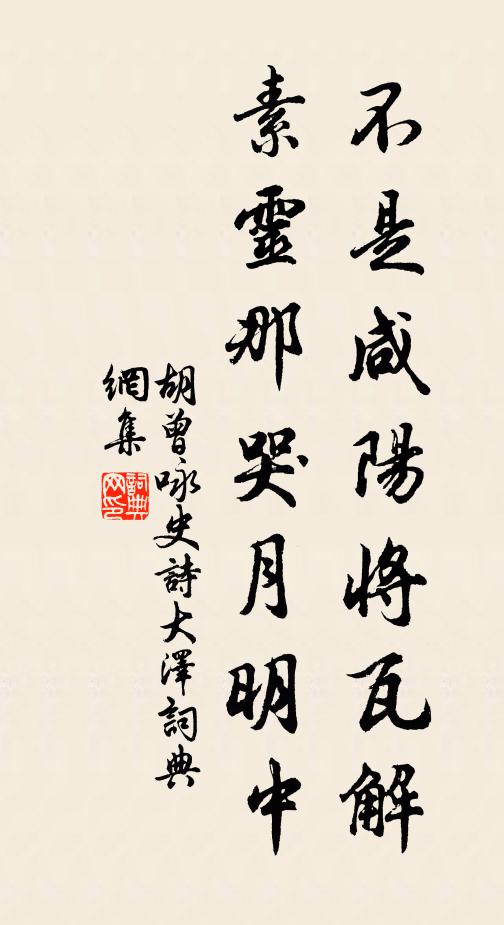 不是咸陽將瓦解
素靈那哭月明中
胡曾咏史詩大澤詞典
網集
詞典
网印